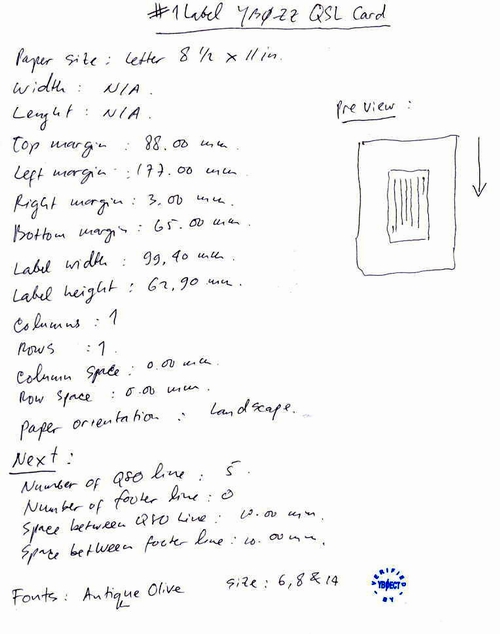 #1 Label YBØZZ QSL Card
Paper size : Letter 8 1/2 x 11 in.
Width : N/A.
Lenght : N/A.
Preview :
Top margin : 88.00 mm.
Left margin : 177.00 mm.
Right margin : 3.00 mm.
Bottom margin : 65.00 mm.
Label width : 99,40 mm.
Label height : 62,90 mm.
Columns : 1
Rows : 1.
Column space : 0.00 mm.
Row space : 0.00 mm.
Paper orientation : Landscape.
Next :
Number of QSO line : 5.
Number of footer line : 0
Space between QSO Line : 10.00 mm.
Space between footer line : 10.00 mm.
Fonts : Antique Olive size : 6,8 & 14
VERIFIED
YBØECT
BY